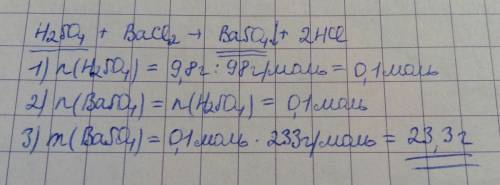 H₂SO₄ + BaCl₂ → BaSO₄↓ + 2HCl
1) n(H₂SO₄) = 9,8г : 98г/моль = 0,1моль
2) n(BaSO₄) = n(H₂SO₄) = 0,1моль
3) m(BaSO₄) = 0,1моль · 233г/моль = 23,3г